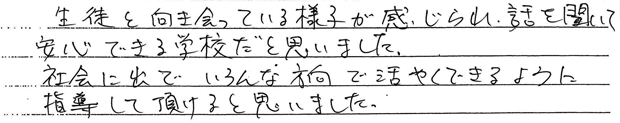 生徒と向き合っている様子が感じられ、話を聞いて
安心できる学校だと思いました。
社会に出て いろんな方向で活やくできるように
指導して頂けると思いました。